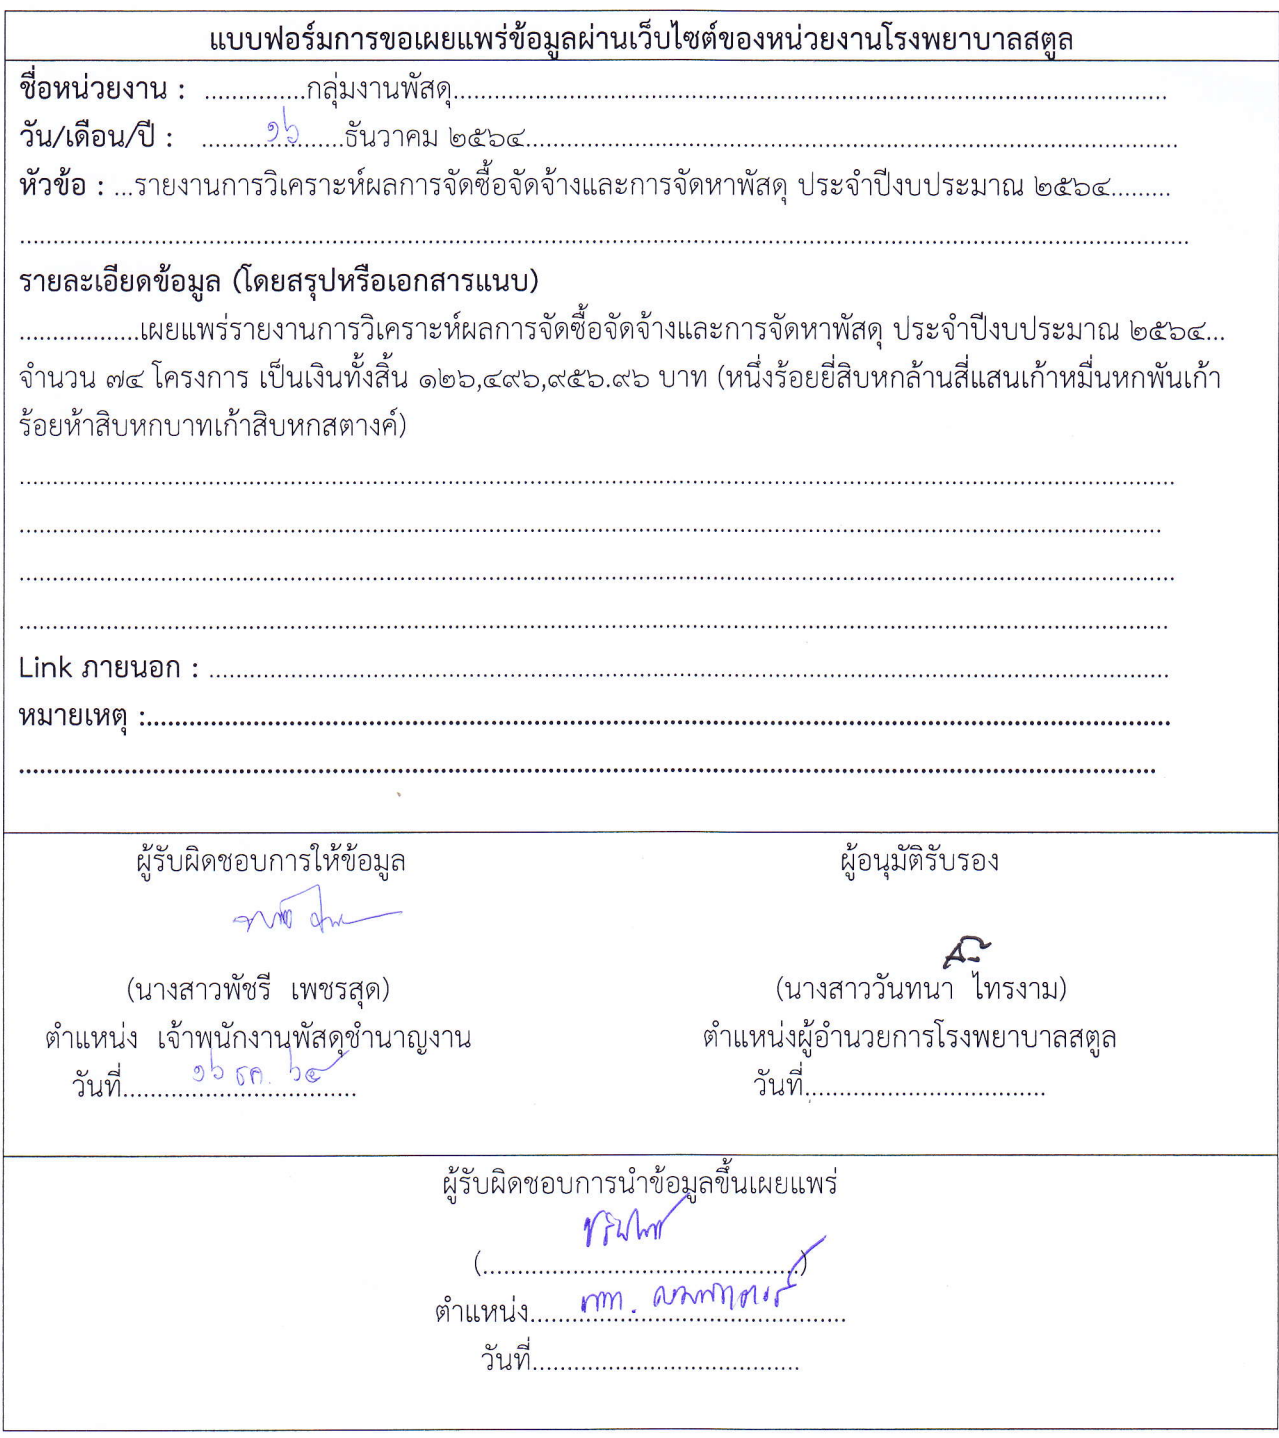 แบบฟอร์มการขอเผยแพร่ข้อมูลผ่านเว็บไซต์ของหน่วยงานโรงพยาบาลสตูล
ชื่อหน่วยงาน : ...............กลุ่มงานพัสดุ..........................................................................................................
วัน/เดือน/ปี : .........๑๖.........ธันวาคม ๒๕๖๔..................................................................................................
หัวข้อ : ...รายงานการวิเคราะห์ผลการจัดซื้อจัดจ้างและการจัดหาพัสดุ ประจำปีงบประมาณ ๒๕๖๔.........
รายละเอียดข้อมูล (โดยสรุปหรือเอกสารแนบ)
..................เผยแพร่รายงานการวิเคราะห์ผลการจัดซื้อจัดจ้างและการจัดหาพัสดุ ประจำปีงบประมาณ ๒๕๖๔...
จำนวน ๗๔ โครงการ เป็นเงินทั้งสิ้น ๑๒๖,๔๙๖,๙๕๖.๙๖ บาท (หนึ่งร้อยยี่สิบหกล้านสี่แสนเก้าหมื่นหกพันเก้า
ร้อยห้าสิบหกบาทเก้าสิบหกสตางค์)
Link ภายนอก : ..........................................................................................................
หมายเหตุ :..........................................................................................................
ผู้รับผิดชอบการให้ข้อมูล
(นางสาวพัชรี เพชรสุด)
ตำแหน่ง เจ้าพนักงานพัสดุชำนาญงาน
วันที่....๑๖ ธค. ๖๔....
ผู้อนุมัติรับรอง
(นางสาววันทนา ไทรงาม)
ตำแหน่งผู้อำนวยการโรงพยาบาลสตูล
วันที่..................................
ผู้รับผิดชอบการนำข้อมูลขึ้นเผยแพร่
(.............................................)
ตำแหน่ง.............................................
วันที่......................................